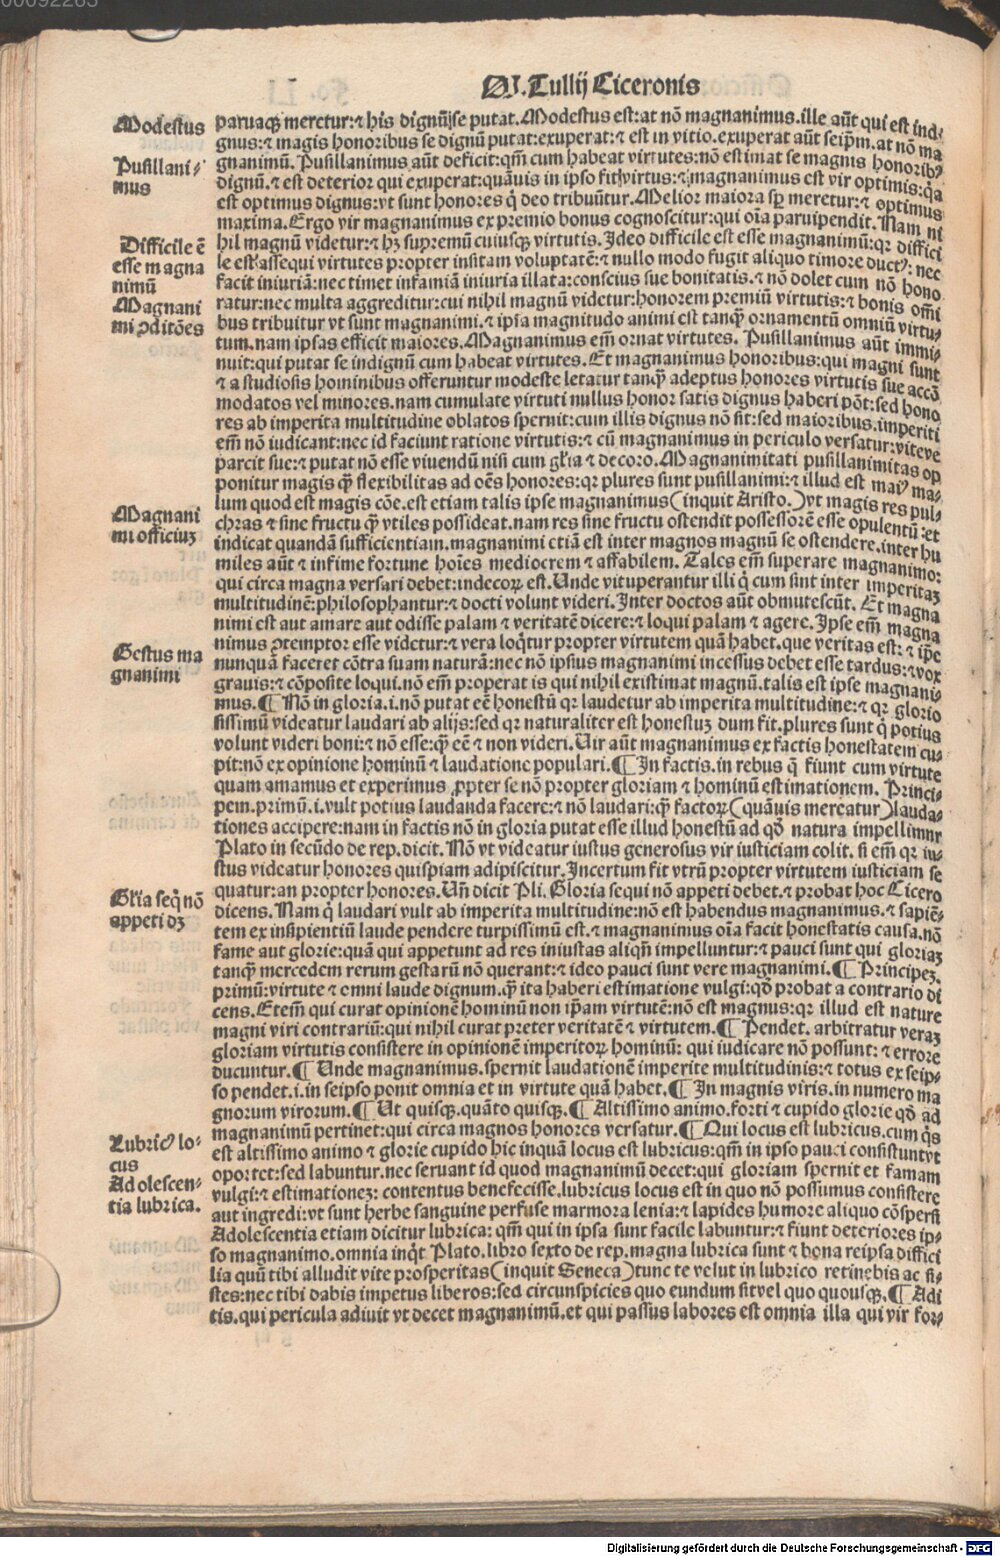 00092263
M. Tullij Ciceronis
Modestus
Pusillani⸗
mus
Difficile ē
esse magna
nimū
Magnani
mi ꝯditōes
Magnani
mi officiuʒ
Gestus ma
gnanimi
Gl'ia seq̄ nō
appeti dʒ
Lubricꝰ lo⸗
cus
Adolescen⸗
tia lubrica.
paruaqꝫ meretur:⁊ his dignū se putat. Modestus est:at nō magnanimus. ille aūt qui est indi⸗
gnus:⁊ magis honoribus se dignū putat:exuperat:⁊ est in vitio. exuperat aūt seip̄m. at nō ma
gnanimū. Pusillanimus aūt deficit:qm̄ cum habeat virtutes:nō estimat se magnis honoribꝰ
dignū. ⁊ est deterior qui exuperat:quāuis in ipso fit virtus:⁊ magnanimus est vir optimis:q̄a
est optimus dignus:vt sunt honores q̄ deo tribuūtur. Melior maiora sp̄ meretur:⁊ optimus
maxima. Ergo vir magnanimus ex premio bonus cognoscitur:qui oīa paruipendit. Nam ni
hil magnū videtur:⁊ hʒ supremū cuiusqꝫ virtutis. Ideo difficile est esse magnanimū:qꝛ diffici
le est assequi virtutes propter insitam voluptatē:⁊ nullo modo fugit aliquo timore ductꝰ: nec
facit iniuriā:nec timet infamiā iniuria illata:conscius sue bonitatis. ⁊ nō dolet cum nō hono
ratur:nec multa aggreditur:cui nihil magnū videtur:honorem premiū virtutis:⁊ bonis om̄i
bus tribuitur vt sunt magnanimi. ⁊ ipsa magnitudo animi est tanqꝫ ornamentū omniū virtu⸗
tum. nam ipsas efficit maiores. Magnanimus em̄ ornat virtutes. Pusillanimus aūt immi⸗
nuit:qui putat se indignū cum habeat virtutes. Et magnanimus honoribus:qui magni sunt
⁊ a studiosis hominibus offeruntur modeste letatur tanqꝫ adeptus honores virtutis sue accō
modatos vel minores. nam cumulate virtuti nullus honor satis dignus haberi pōt:sed hono
res ab imperita multitudine oblatos spernit:cum illis dignus nō sit:sed maioribus. imperiti
em̄ nō iudicant:nec id faciunt ratione virtutis:⁊ cū magnanimus in periculo versatur:vite ve
parcit sue:⁊ putat nō esse viuendū nisi cum gl'ia ⁊ decoro. Magnanimitati pusillanimitas op
ponitur magis qꝫ flexibilitas ad oēs honores:qꝛ plures sunt pusillanimi:⁊ illud est maiꝰ ma⸗
lum quod est magis cōe. est etiam talis ipse magnanimus (inquit Aristo.) vt magis res pul⸗
chras ⁊ sine fructu qꝫ vtiles possideat. nam res sine fructu ostendit possessorē esse opulentū:et
indicat quandā sufficientiam. magnanimi etiā est inter magnos magnū se ostendere. inter hu
miles aūt ⁊ infime fortune hoīes mediocrem ⁊ affabilem. Tales em̄ superare magnanimo:
qui circa magna versari debet:indecoꝝ est. Unde vituperantur illi q̄ cum sint inter imperitaʒ
multitudinē:philosophantur:⁊ docti volunt videri. Inter doctos aūt obmutescūt. Et magna
nimi est aut amare aut odisse palam ⁊ veritatē dicere:⁊ loqui palam ⁊ agere. Ipse em̄ magna
nimus ꝯtemptor esse videtur:⁊ vera loq̄tur propter virtutem quā habet. que veritas est: ⁊ ip̄e
nunquā faceret cōtra suam naturā:nec nō ipsius magnanimi incessus debet esse tardus:⁊ vox
grauis:⁊ cōposite loqui. nō em̄ properat is qui nihil existimat magnū. talis est ipse magnani⸗
mus. ¶ Nō in gloria. i. nō putat eē honestū qꝛ laudetur ab imperita multitudine:⁊ qꝛ glorio
sissimū videatur laudari ab alijs:sed qꝛ naturaliter est honestuʒ dum fit. plures sunt q̄ potius
volunt videri boni:⁊ nō esse:qꝫ eē ⁊ non videri. Uir aūt magnanimus ex factis honestatem cu
pit:nō ex opinione hominū ⁊ laudatione populari. ¶ In factis. in rebus q̄ fiunt cum virtute
quam amamus et experimus ꝓpter se nō propter gloriam ⁊ hominū estimationem. Princi⸗
pem. primū. i. vult potius laudanda facere:⁊ nō laudari:qꝫ factoꝝ (quāuis mereatur) lauda⸗
tiones accipere:nam in factis nō in gloria putat esse illud honestū ad qđ natura impellimur
Plato in secūdo de rep. dicit. Nō vt videatur iustus generosus vir iusticiam colit. si em̄ qꝛ iu⸗
stus videatur honores quispiam adipiscitur. Incertum fit vtrū propter virtutem iusticiam se
quatur:an propter honores. Un̄ dicit Pli. Gloria sequi nō appeti debet. ⁊ probat hoc Cicero
dicens. Nam q̄ laudari vult ab imperita multitudine:nō est habendus magnanimus. ⁊ sapiē⸗
tem ex insipientiū laude pendere turpissimū est. ⁊ magnanimus oīa facit honestatis causa. nō
fame aut glorie:quā qui appetunt ad res iniustas aliqn̄ impelluntur:⁊ pauci sunt qui gloriaʒ
tanqꝫ mercedem rerum gestarū nō querant:⁊ ideo pauci sunt vere magnanimi. ¶ Principeʒ.
primū:virtute ⁊ omni laude dignum. qꝫ ita haberi estimatione vulgi:qđ probat a contrario di
cens. Etem̄ qui curat opinionē hominū non ip̄am virtutē:nō est magnus:qꝛ illud est nature
magni viri contrariū:qui nihil curat preter veritatē ⁊ virtutem. ¶ Pendet. arbitratur veraʒ
gloriam virtutis consistere in opinionē imperitoꝝ hominū: qui iudicare nō possunt: ⁊ errore
ducuntur. ¶ Unde magnanimus. spernit laudationē imperite multitudinis:⁊ totus ex seip⸗
so pendet. i. in seipso ponit omnia et in virtute quā habet. ¶ In magnis viris. in numero ma
gnorum virorum. ¶ Ut quisqꝫ. quāto quisqꝫ. ¶ Altissimo animo. forti ⁊ cupido glorie qđ ad
magnanimū pertinet:qui circa magnos honores versatur. ¶ Qui locus est lubricus. cum q̄s
est altissimo animo ⁊ glorie cupido hic inquā locus est lubricus:qm̄ in ipso pauci consistunt vt
oportet:sed labuntur. nec seruant id quod magnanimū decet:qui gloriam spernit et famam
vulgi:⁊ estimationeʒ: contentus benefecisse. lubricus locus est in quo nō possumus consistere
aut ingredi:vt sunt herbe sanguine perfuse marmora lenia:⁊ lapides humore aliquo cōspersi
Adolescentia etiam dicitur lubrica: qm̄ qui in ipsa sunt facile labuntur:⁊ fiunt deteriores ip⸗
so magnanimo. omnia inq̄t Plato. libro sexto de rep. magna lubrica sunt ⁊ bona reipsa diffici
lia quū tibi alludit vite prosperitas (inquit Seneca) tunc te velut in lubrico retinebis ac si⸗
stes:nec tibi dabis impetus liberos:sed circunspicies quo eundum sit vel quo quousqꝫ. ¶ Adi
tis. qui pericula adiuit vt decet magnanimū. et qui passus labores est omnia illa qui vir for⸗
Digitalisierung gefördert durch die Deutsche Forschungsgemeinschaft - DFG